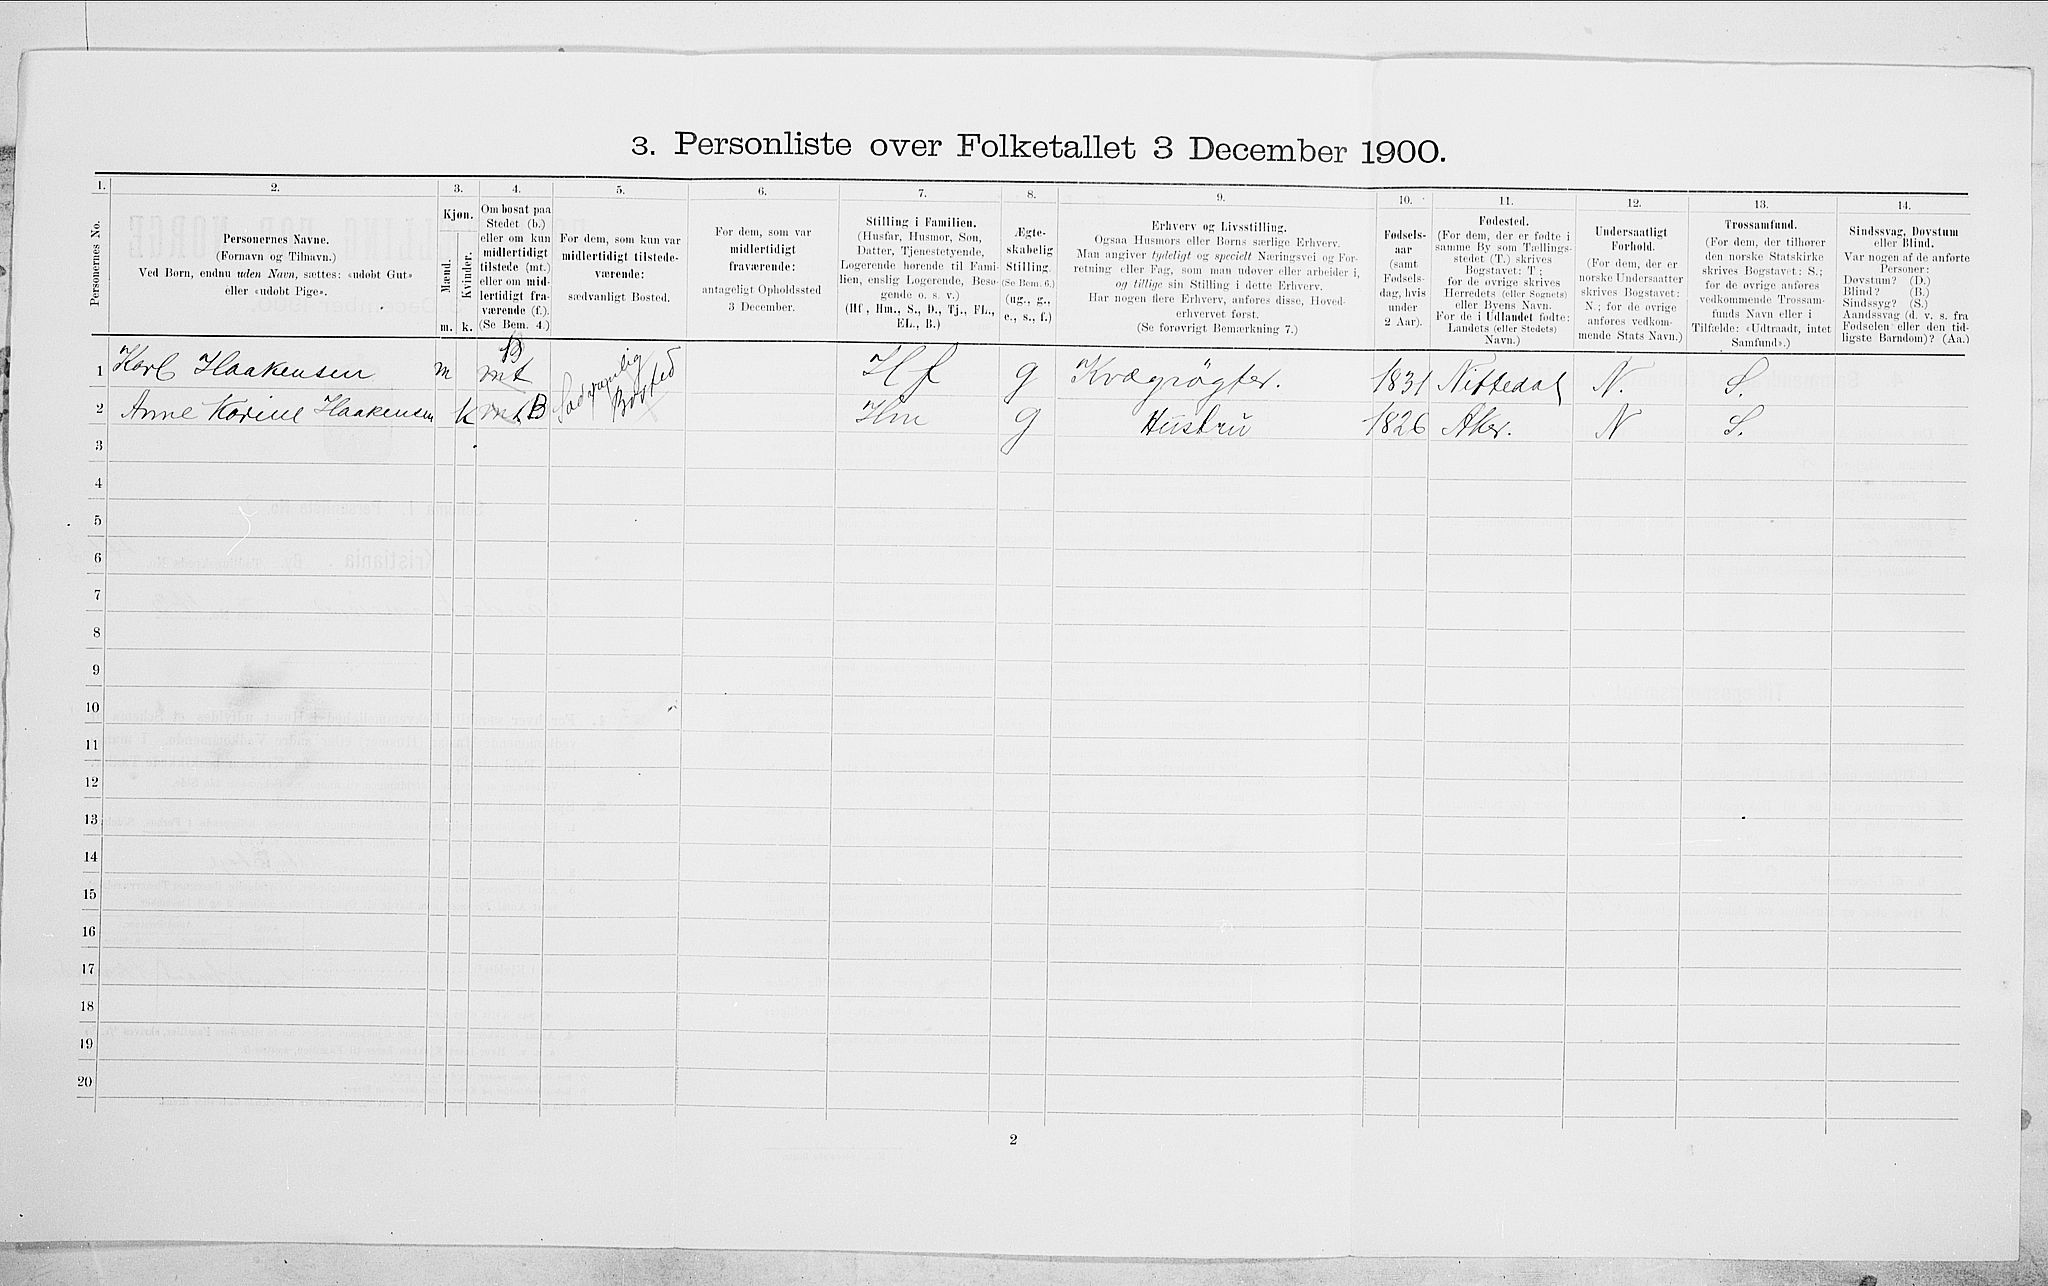 3. Personliste over Folketallet 3 December 1900.
1. 2. 3. 4. 5. 6. 7. 8. 9. 10. 11. 12. 13. 14.
Personernes No.
Personernes Navne.
(Fornavn og Tilnavn.)
Ved Børn, endnu uden Navn, sættes: «udøbt Gut»
eller «udøbt Pige».
Kjøn.
Mænd.
Kvinder.
m. k.
Om bosat paa
Stedet (b.)
eller om kun
midlertidigt
tilstede (mt.)
eller om mid-
lertidigt fra-
værende (f.).
(Se Bem. 4.)
For dem, som kun var
midlertidigt tilstede-
værende:
sædvanligt Bosted.
For dem, som var
midlertidigt
fraværende:
antageligt Opholdssted
3 December.
Stilling i Familien.
(Husfar, Husmor, Søn,
Datter, Tjenestetyende,
Logerende hørende til Fami-
lien, enslig Logerende, Besø-
gende o. s. v.)
(Hf., Hm., S., D., Tj., FL.,
EL., B.)
Ægte-
skabelig
Stilling.
(Se Bem. 6.)
(ug., g.,
e., s., f.)
Erhverv og Livsstilling.
Ogsaa Husmors eller Børns særlige Erhverv.
Man angiver tydeligt og specielt Næringsvei og For-
retning eller Fag, som man udøver eller arbeider i,
og tillige sin Stilling i dette Erhverv.
Har nogen flere Erhverv, anføres disse, Hoved-
erhvervet først.
(Se forøvrigt Bemærkning 7.)
Fødsels-
aar
(samt
Fødsels-
dag, hvis
under
2 Aar).
Fødested.
(For dem, der er fødte i
samme By som Tællings-
stedet (T.) skrives
Bogstavet: T.;
for de øvrige skrives
Herredets (eller Sognets)
eller Byens Navn.
For de i Udlandet fødte:
Landets (eller Stedets)
Navn.)
Undersaatligt
Forhold.
(For dem, der er
norske Undersaatter
skrives Bogstavet:
N.; for de øvrige
anføres vedkom-
mende Stats Navn.)
Trossamfund.
(For dem, der tilhører
den norske Statskirke
skrives Bogstavet: S.;
for de øvrige anføres
vedkommende Trossam-
funds Navn eller i
Tilfælde: «Udtraadt, intet
Samfund».)
Sindssvag, Døvstum
eller Blind.
Var nogen af de anførte
Personer:
Døvstum? (D.)
Blind? (B.)
Sindssyg? (S.)
Aandssvag (d. v. s. fra
Fødselen eller den tid-
ligste Barndom)? (Aa.)
1 Karl Haakensen m mt B Sædvanlig Hf g Kvægrøgter. 1831 Nittedal N. S.
2 Anne Karine Haakensen k mt B Bosted Hm g Hustru 1826 Aker. N S.
3
4
5
6
7
8
9
10
11
12
13
14
15
16
17
18
19
20
2